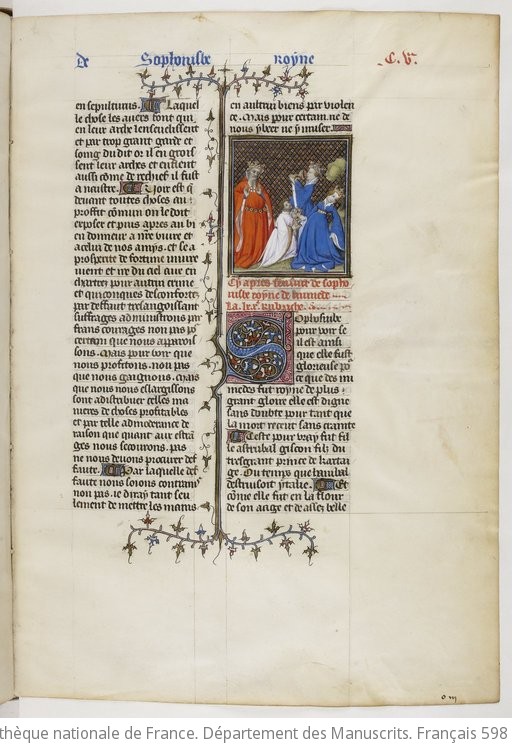 De Sophonisbe royne C. V.
en sepultures. Laquel
le chose les avers font qui
en leur arche lensevelissent
et par trop grant garde et
soing du dit or il en grois
sent leur arches et enflent
aussi come de rechief il fust
a naistre. Tour est q
devant toutes choses au
proffit comun on le doit
exposer et puis apres au bi
en donneur a nre vivre et
a celui de nos amys. et se a
prosperite de fortune muire
vient et ire du ciel que en
chartres pour autrui crime
et quiconques desconforte
par deffaut tres angoissant
suffrages administrons par
frans courages non pas po
certain que nous apparois
sons. Mais pour voir que
nous profitons. non pas
que nous gaignons. Mais
que nous nous eslargissons
sont a distribuer telles ma
nieres de choses profitables
et par telle admoderance de
raison que quant aux estra
ges nous secourons. pas
ne nous devons procurer def
faute. Par laquelle def
faute nous soions contrains
non pas ie diray tant seu
lement de mettre les mains
en autrui biens par violen
ce. Mais pour certain ne de
nous y veer ne y muser.
Cy apres sensuit de sopho
nisbe royne de numede
La. lxx. Rubriche.
Sophonisbe
pour voir se
il est ainsi
que elle fust
glorieuse po
ce que des nu
medes fut royne de plus
grant gloire elle est digne
sans doubte pour tant que
la mort receut sans crainte
Ceste pour vray fut fil
le astrubal giscon filz du
tresgrant prince de kartai
ge. Ou temps que hanibal
destruisoit ytalie. Et
come elle fut en la flour
de son aage et de assez belle
thèque nationale de France. Département des Manuscrits. Français 598